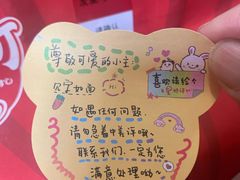 尊敬可爱的小主
见字如面
Hi
喜欢请给个
如遇任何问题
请勿急着中差评哦
联系我们,一定为您
满意处理呦~